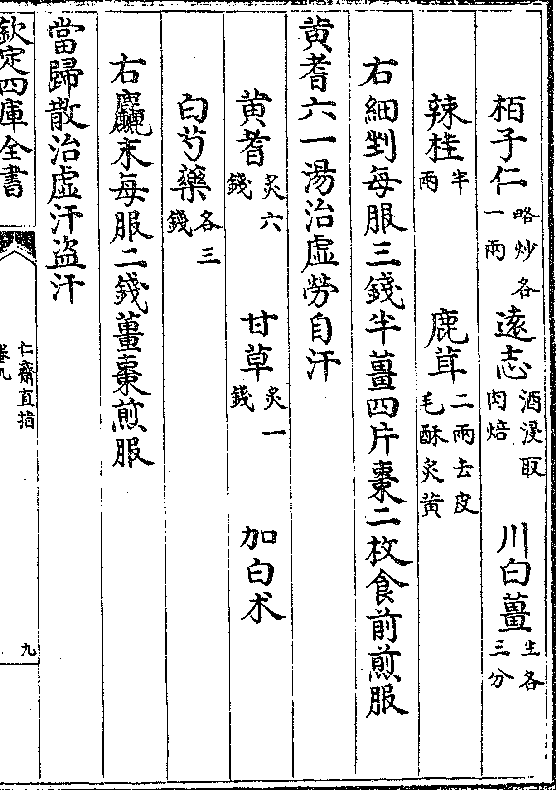 栢子仁略炒各一兩 遠志酒浸取肉焙 川白薑生各三分
辣桂半兩 鹿茸二兩去皮毛酥炙黄
右細剉每服三錢半薑四片棗二枚食前煎服
黄耆六一湯治虛勞自汗
黄耆炙六錢 甘草炙一錢 加白朮
白芍藥各三錢
右麤末每服二錢薑棗煎服
當歸散治虛汗盜汗
欽定四庫全書
仁齋直指
卷九
九